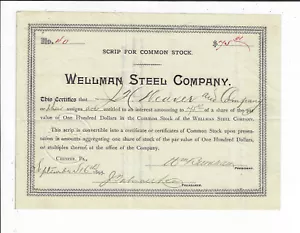 No. 40 $45.00
SCRIP FOR COMMON STOCK.
WELLMAN STEEL COMPANY.
This Certifies that Weaver and Company
or assigns are entitled to an interest according to of a share of the par
value of One Hundred Dollars in the COMMON STOCK of the WELLMAN STEEL COMPANY.
This scrip is convertible into a certificate or certificates of Common Stock upon presentation
in amounts aggregating one share of stock of the par value of One Hundred Dollars,
or multiples thereof, at the office of the Company.
CHESTER, PA.
September
PRESIDENT.
TREASURER.